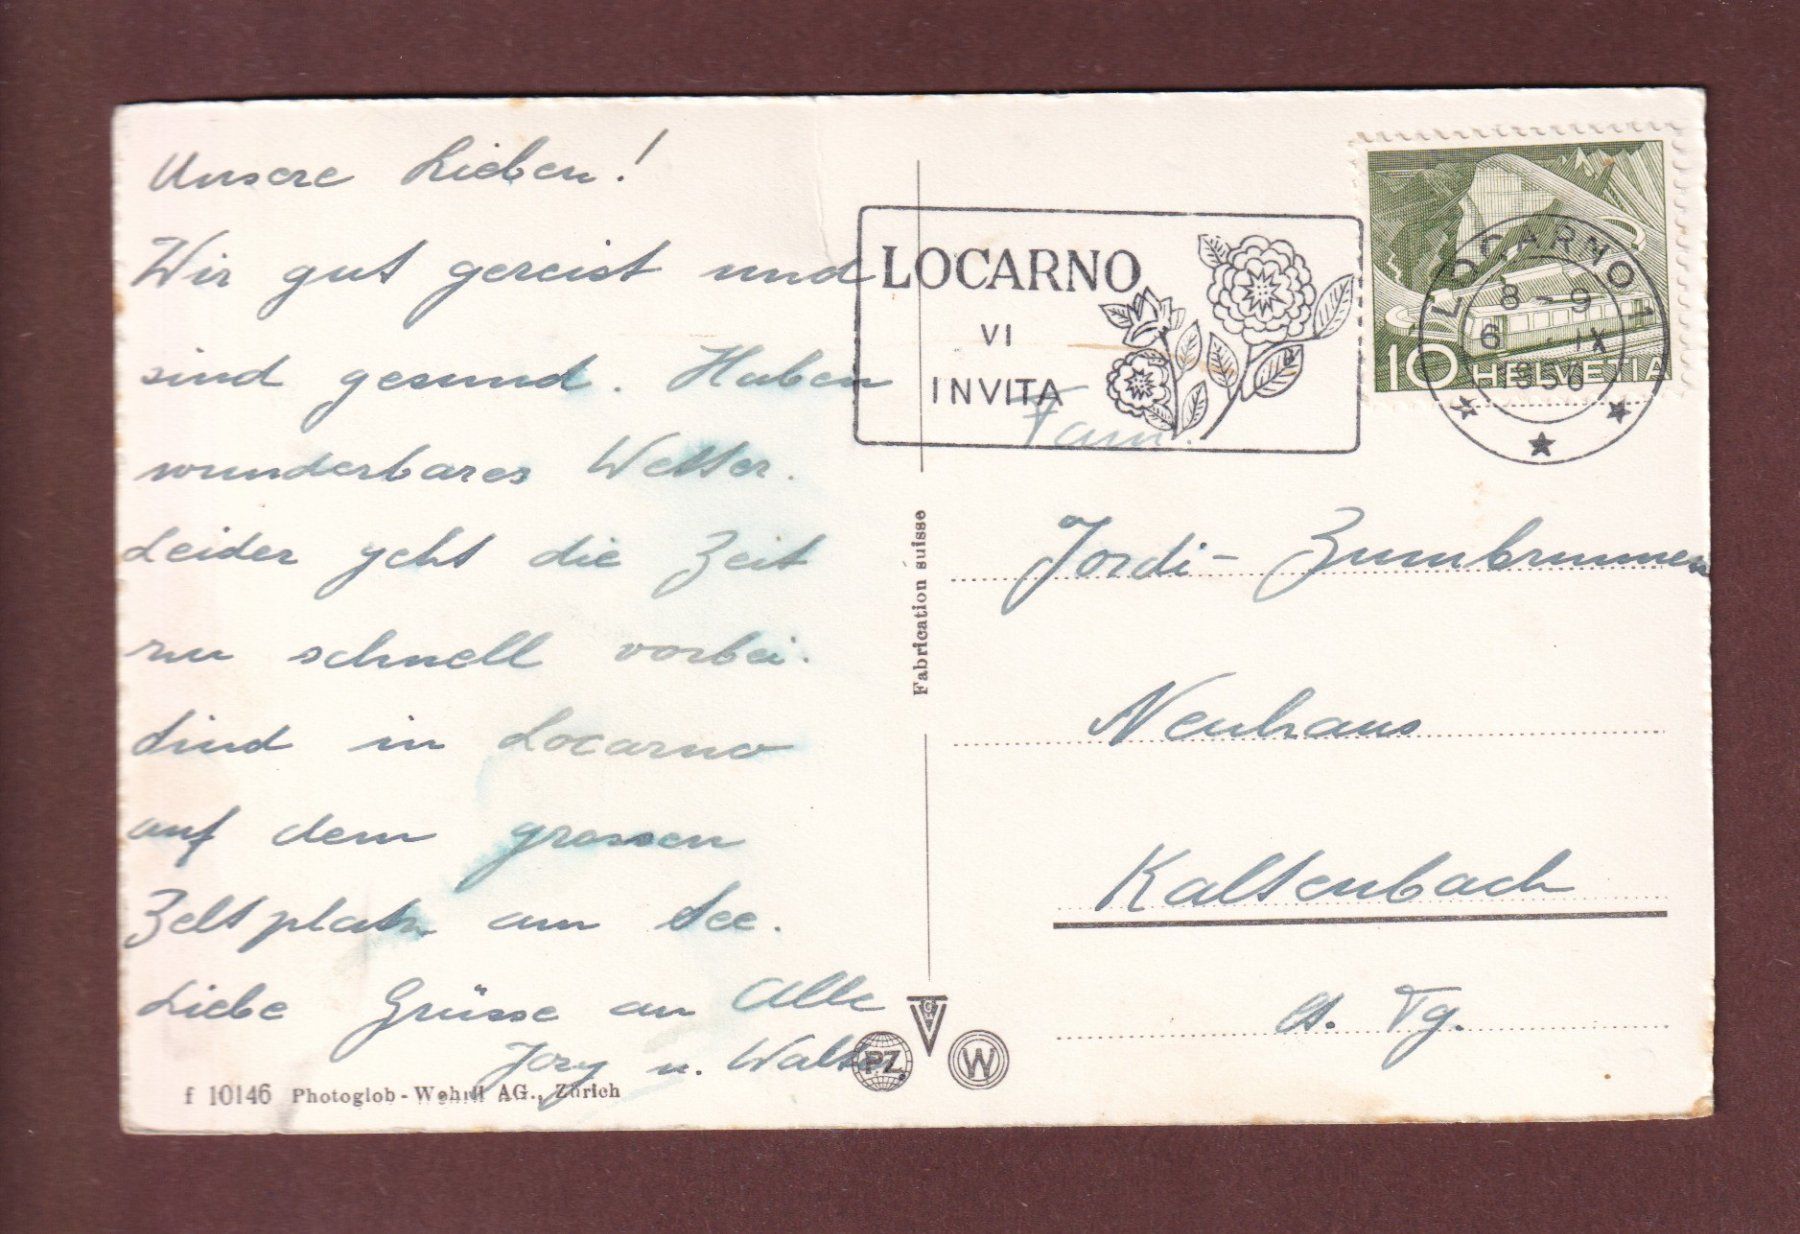 Unsere Lieben!
Wir gut gereist und
sind gesund. Haben
wunderbares Wetter.
Leider geht die Zeit
zu schnell vorbei.
Sind in Locarno
auf dem grossen
Zeltplatz am See.
Liebe Grüsse an Alle
Jory u. Walter
f 10146 Photoglob-Wehrli AG., Zürich
Fabrication suisse
LOCARNO
VI
INVITA
HELVETIA
10
LOCARNO 1
8-9
6. IX
1956
Fam.
Jordi-Zumbrunnen
Neuhaus
Kaltenbach
Tg.
P.Z.
W